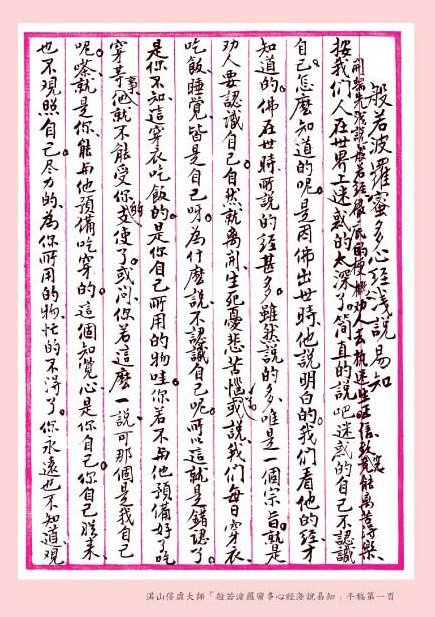 般若波羅蜜多心經淺說易知
開題先淺說般若經徹底的梗概勸人去執迷生正信究竟能離苦得樂
按我們人在世界上迷惑的太深了。簡直的說吧迷惑的自己不認識
自己。怎麼知道的呢。是因佛出世時他說明白的。我們看他的經才
知道的。佛在世時所說的經甚多。雖然說的多。唯是一個宗旨。就是
勸人要認識自己。自然就離開生死憂悲苦惱。或說我們每日穿衣、
吃飯、睡覺、皆是自己呀。為什麼說不認識自己呢。所以這就是錯認了。
是你不知這穿衣吃飯的。是你自己所用的物哇。你若不與他預備好了吃
穿等事他就不能受你的支使了。或問你若這麼一說。可那個是我自己
呢。就是你能與他預備吃穿的。這個知覺心是你自己。你自己來
也不觀照自己。尽力的為你所用的物忙的不得了。你永遠也不知道觀
湛山倓虛大師「般若波羅蜜多心經淺說易知」手稿第一頁